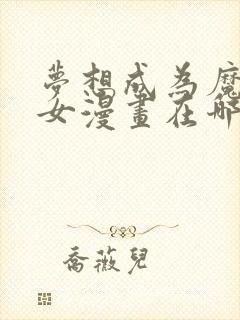 夢想成為魔
女漫畫在哪
喬薇兒